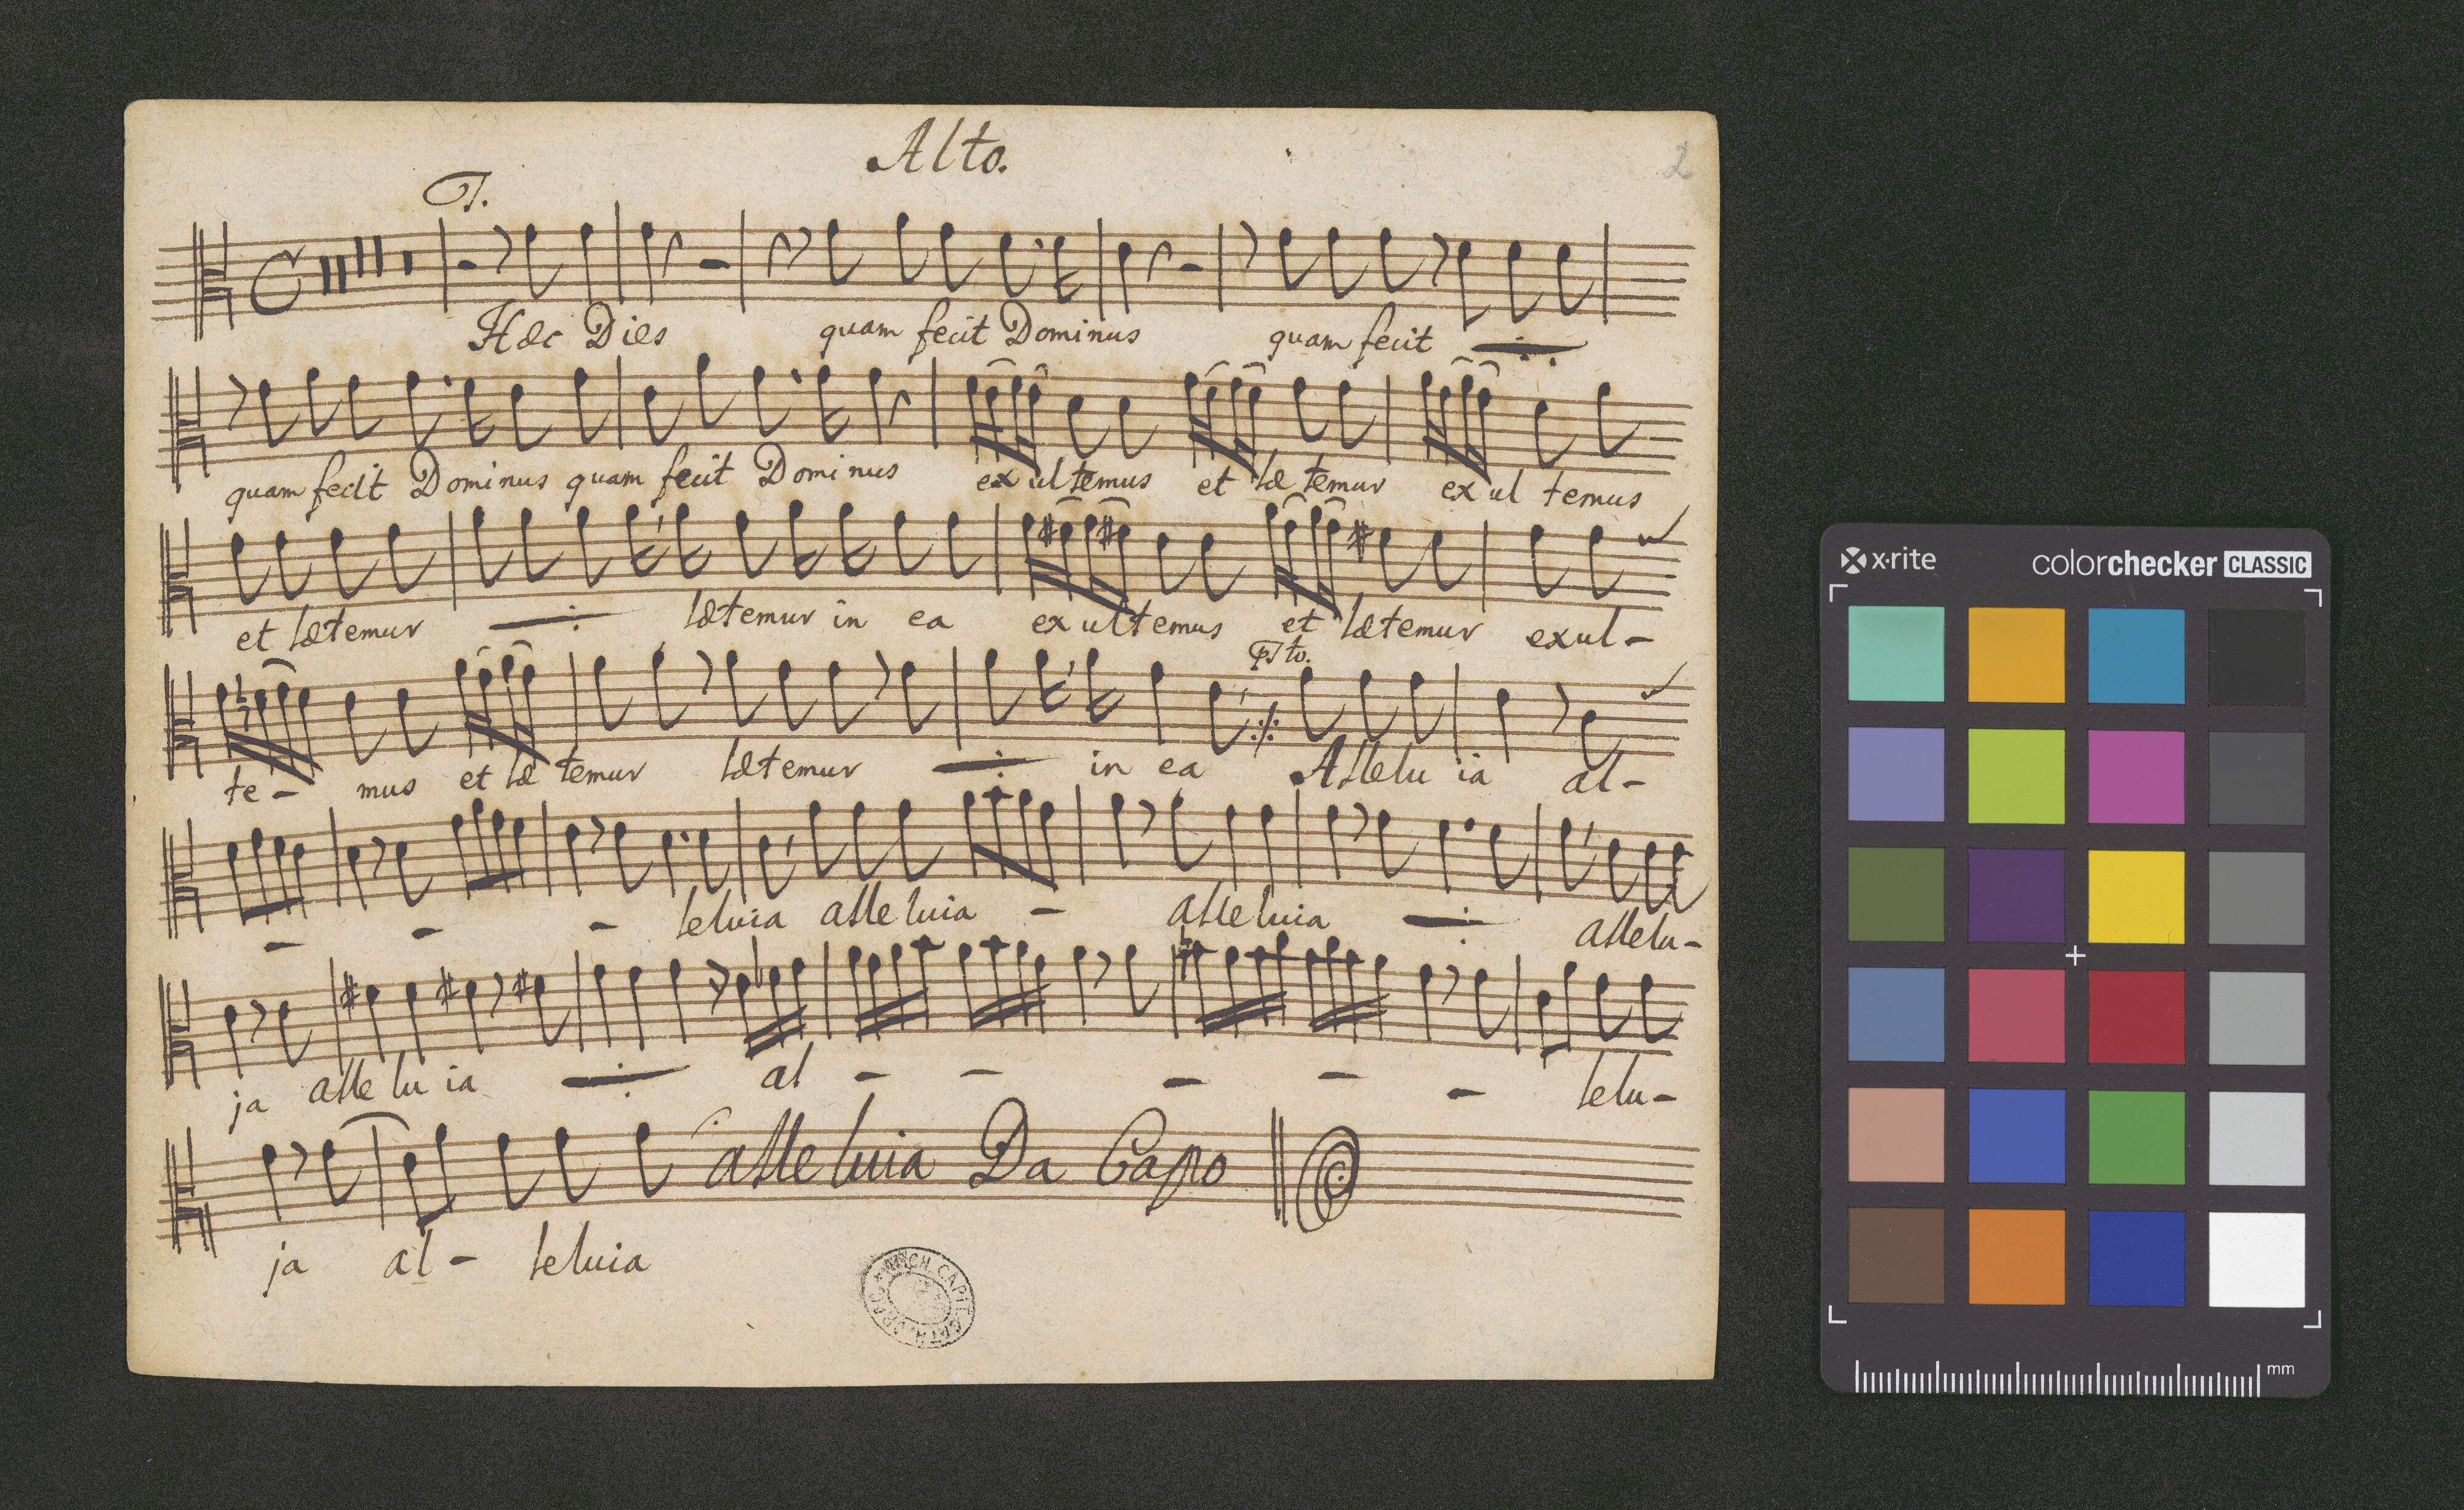 Alto.
2
T.
Hæc Dies quam fecit Dominus quam fecit
quam fecit Dominus quam fecit Dominus exultemus et lætemur exul temus
et lætemur lætemur in ea exultemus et lætemur exul-
Tto.
te- mus et lætemur lætemur in ea Allelu ia al-
- - - leluia alleluia - alleluia allelu-
ja allelu ia al - - - - - lelu-
alleluia Da Capo
ja al- leluia
x·rite colorchecker CLASSIC
mm